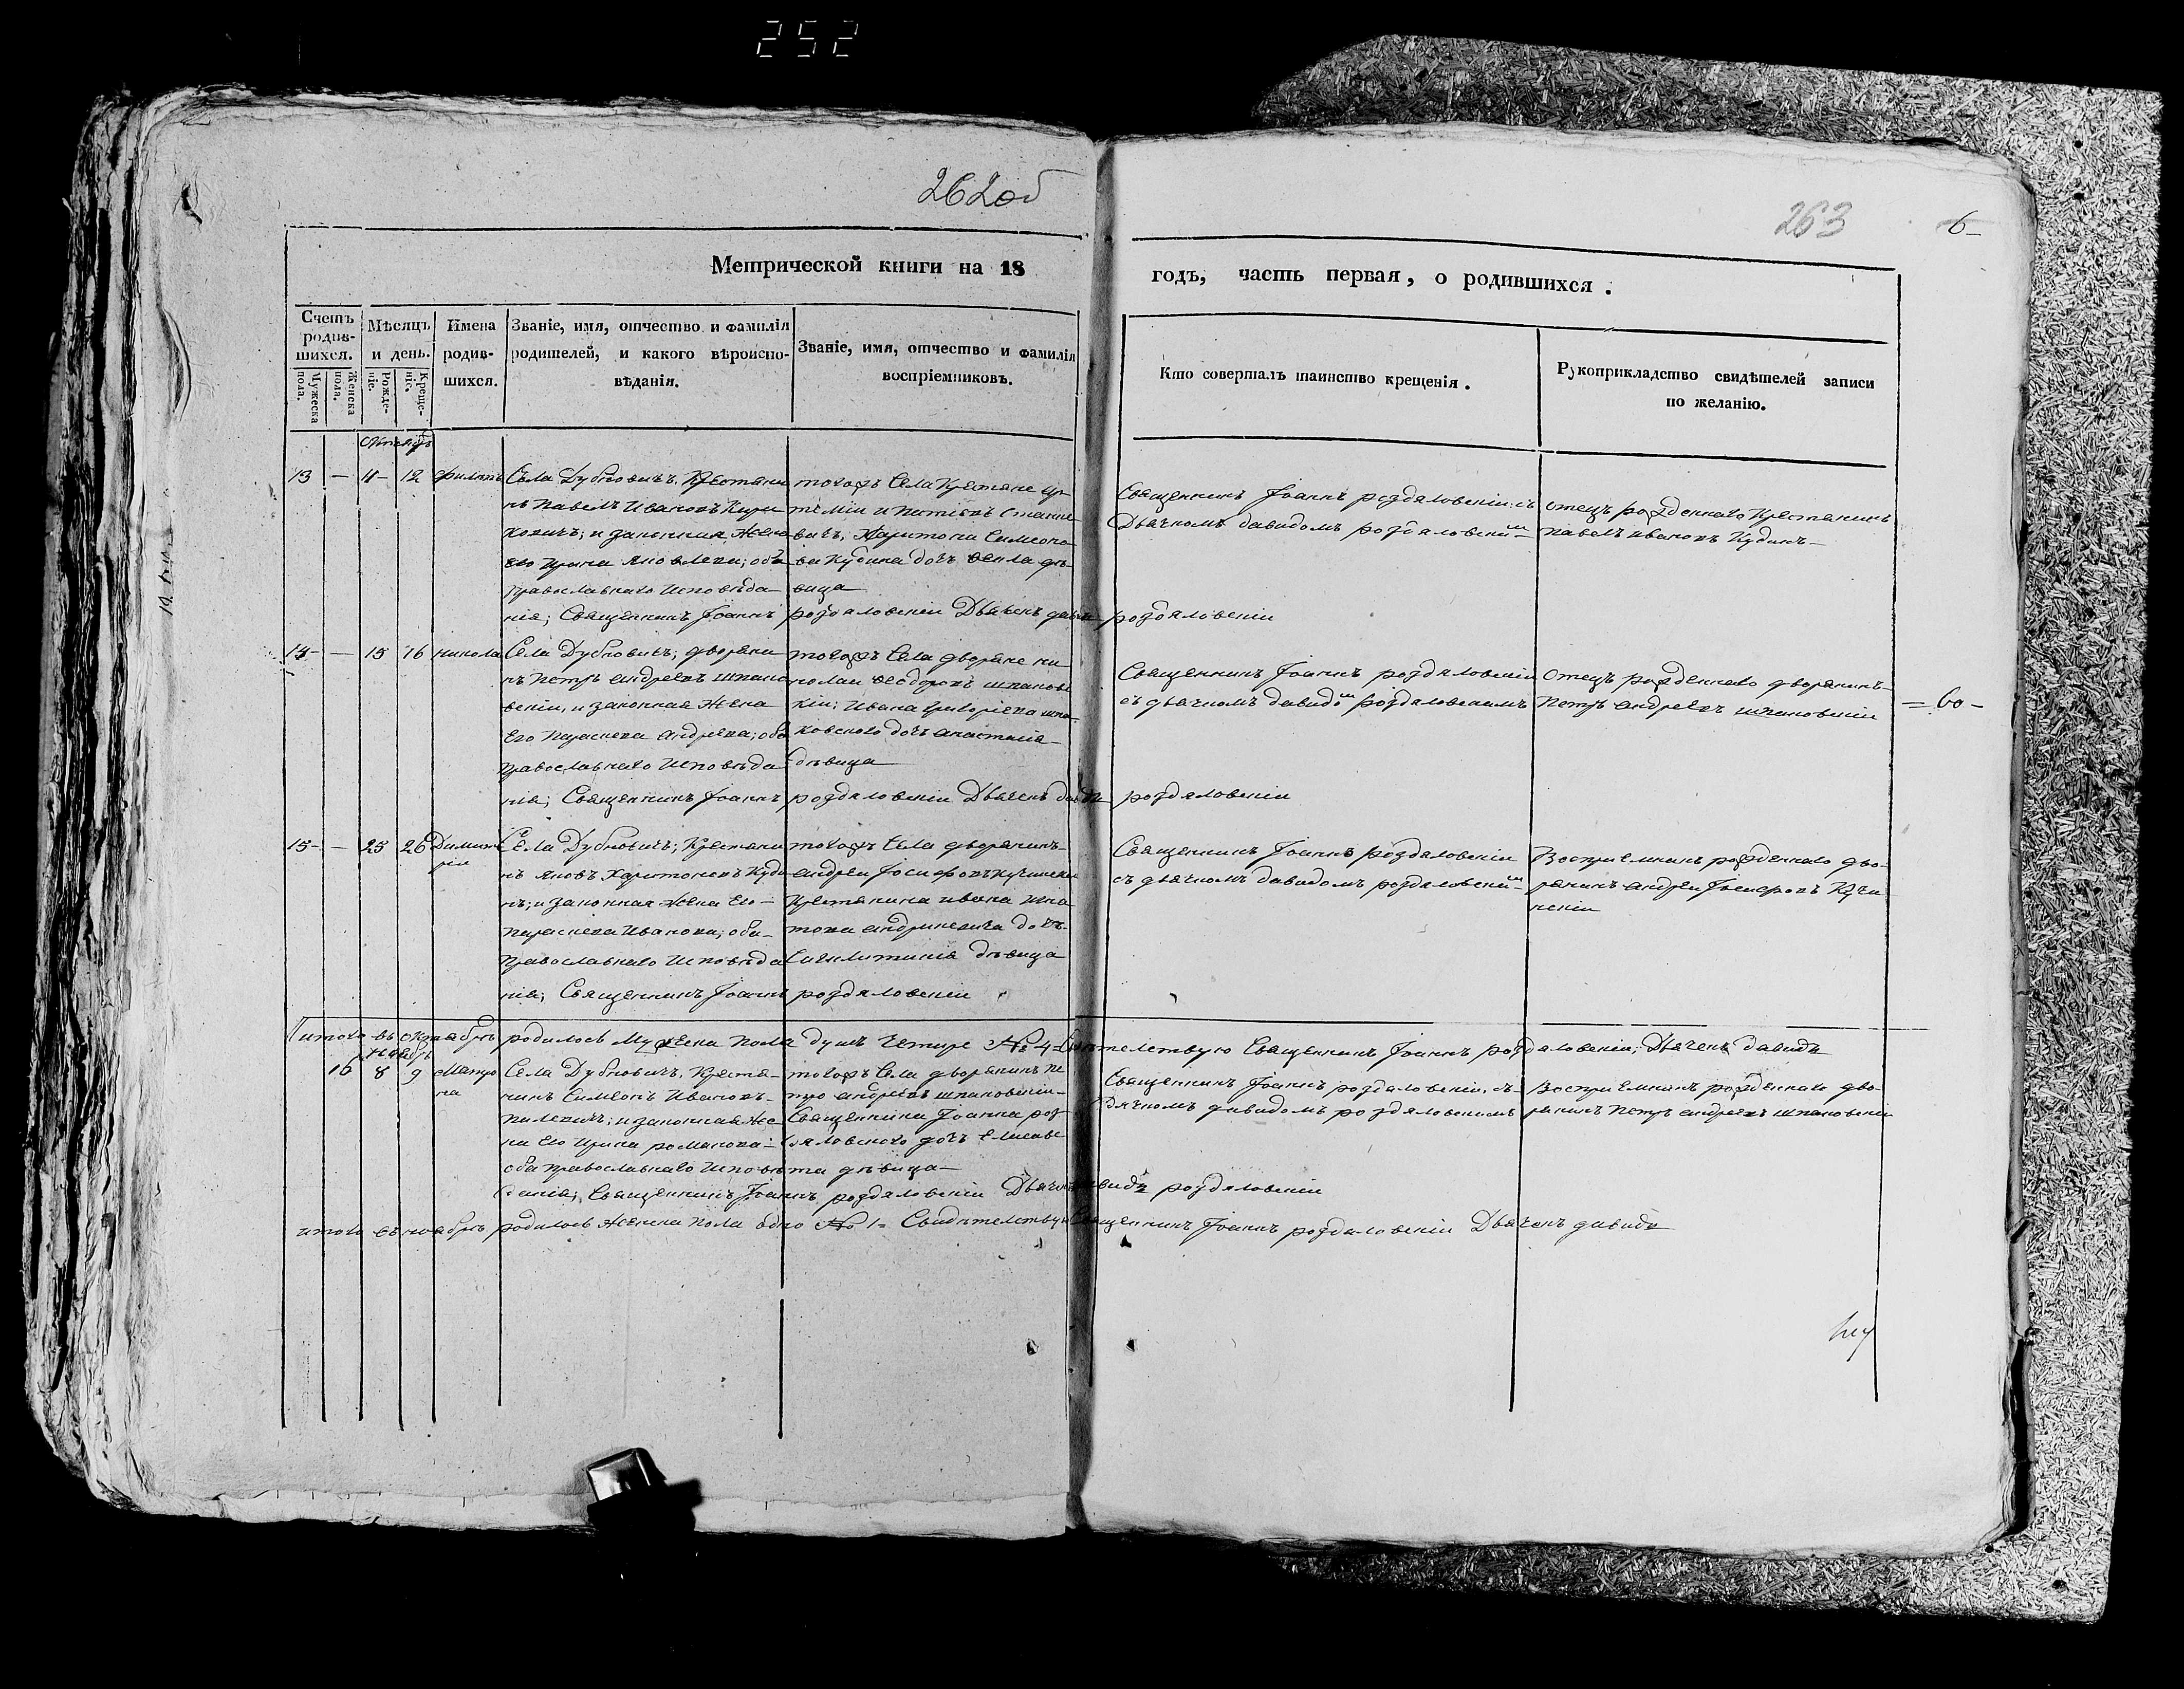 252
262об
263
6
Метрической книги на 18
годъ, часть первая, о родившихся.
Счетъ родившихся.
Мужеска пола.
Женска пола.
Мѣсяцъ и день.
Рожденіе.
Крещеніе.
Имена родившихся.
Званіе, имя, отчество и фамилія родителей, и какого вѣроисповѣданія.
Званіе, имя, отчество и фамилія воспріемниковъ.
Кто совершалъ таинство крещенія.
Рукоприкладство свидѣтелей записи по желанію.
13 — 11 12
Села Дубновичъ, Крестяни
нъ Павелъ Ивановъ
и законная Жена
Его Ирина Яковлева; оба
православнаго Исповѣда
нія; Священникъ Іоаннъ розdяловскіи Дьячекъ
розdяловскіи
тогожъ Села Крестяне
Харитона Симеоно
ва Кудина дочъ Фекла дѣ
вица
Священникъ Іоаннъ роздяловскіи съ
Дьячкомъ давидомъ роздяловским
отецъ рожденнаго Крестянинъ
павелъ ивановъ
14 — 15 16 никола
Села Дубновичъ; дворяни
нъ Петръ андреевъ шпако
вскіи, и законная Жена
Его параскева андреева; оба
православнаго Исповѣда
нія; Священникъ Іоаннъ роздяловскіи Дьячекъ давидъ
роздяловскіи
тогожъ Села дворяне ни
колаи Феодоровъ шпаковс
кіи; Ивана григоріева шпа
ковского дочъ анастасія
дѣвица
Священникъ Іоаннъ роздяловскіи
съ дьячкомъ давидомъ роздяловскимъ
Отецъ рожденнаго дворянинъ
Петръ андреевъ шпаковскіи
= 60 -
15 — 25 26 Димит
рія
Села Дубновичъ; Крестяни
нъ яковъ Харитоновъ Куди
нъ; и законная Жена Его
параскева Иванова; оба
православнаго Исповѣда
нія; Священникъ Іоаннъ роздяловскіи
тогожъ Села дворянинъ
андреи Іосифовъ
Крестянина ивана
дочъ
дѣвица
Священникъ Іоаннъ роздяловскіи
съ дьячкомъ давидомъ роздяловским
Воспріемникъ рожденнаго дво
рянинъ андреи Іосифовъ
итого въ октябрѣ родилось Мужеска пола душъ четыре № 4 Свидѣтелствую Священникъ Іоаннъ роздяловскіи, Дьячекъ давидъ
ноябрь
16 8 9 Матро
на
Села Дубновичъ, Крестя
нинъ Симеонъ Ивановъ
и законная Же
на Его Ирина романова
оба православнаго Исповѣ
данія; Священникъ Іоаннъ роздяловскіи Дьячекъ давидъ роздяловскіи
тогожъ Села дворянинъ Пе
тръ андреевъ шпаковскіи
Священника Іоанна роз
дяловского дочъ Елисаве
та дѣвица
Священникъ Іоаннъ роздяловскіи, съ
дьячкомъ давидомъ роздяловскимъ
Воспріемникъ рожденнаго дво
рянинъ Петръ андреевъ шпаковскіи
итого въ ноябрѣ родилось Женска пола одно № 1 Свидѣтелствую Священникъ Іоаннъ роздяловскіи Дьячекъ давидъ